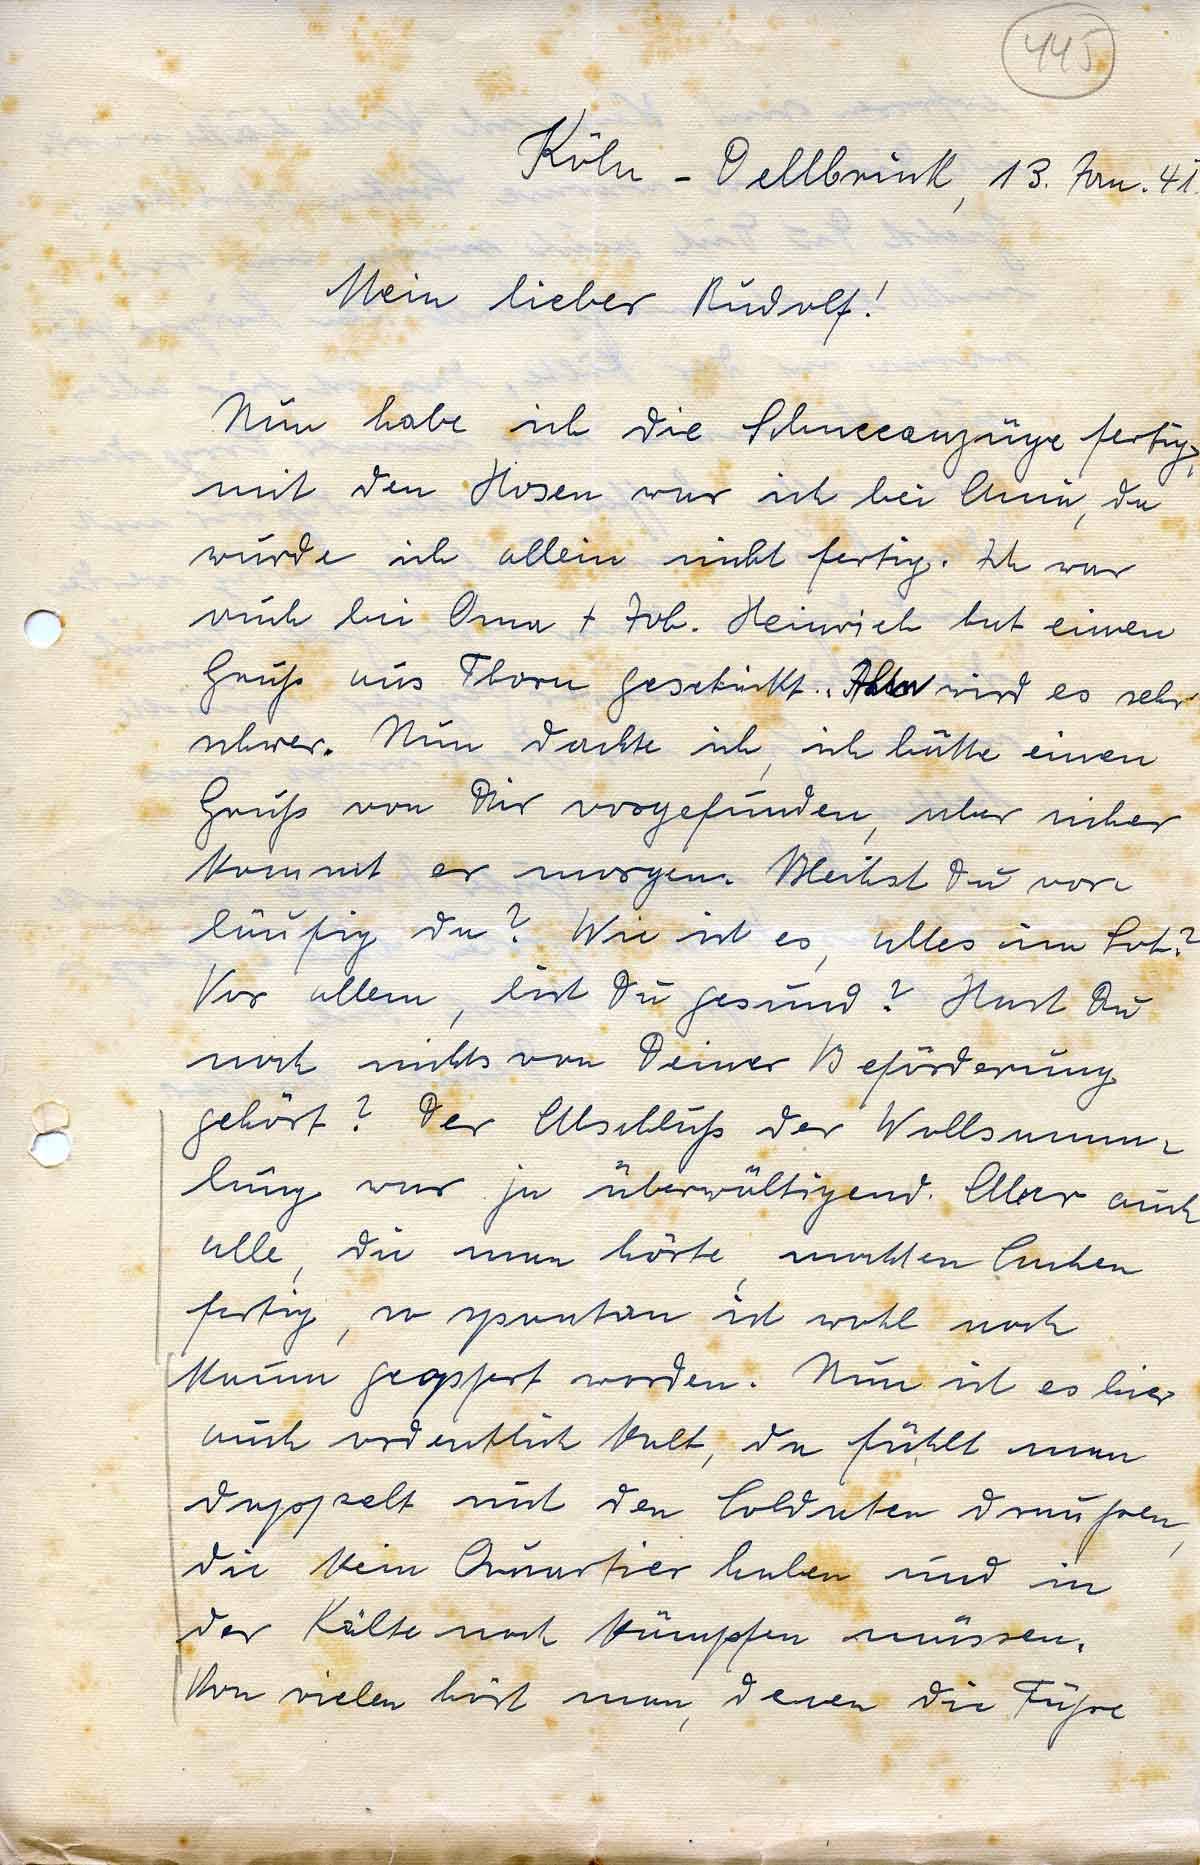 445
Köln - Dellbrück, 13. Jan. 41.
Mein lieber Rudolf!
Nun habe ich die Schneeanzüge fertig,
mit den Hosen war ich bei Änni, da
wurde ich allein nicht fertig. Ich war
auch bei Oma + Joh. Heinrich hat einen
Gruß aus Thorn geschickt. wird es sehr
schwer. Nun dachte ich, ich hätte einen
Gruß von Dir vorgefunden, aber sicher
kommt er morgen. Bleibst Du vor-
läufig da? Wie ist es, alles im Lot?
Vor allem, bist Du gesund? Hast Du
noch nichts von Deiner Beförderung
gehört? Der Abschluß der Wollsamm-
lung war ja überwältigend. Aber auch
alle, die man hörte, machten Sachen
fertig, so spontan ist wohl noch
kaum geopfert worden. Nun ist es hier
auch ordentlich kalt, da fühlt man
doppelt mit den Soldaten draußen,
die kein Quartier haben und in
der Kälte noch kämpfen müssen.
Von vielen hört man, denen die Füße